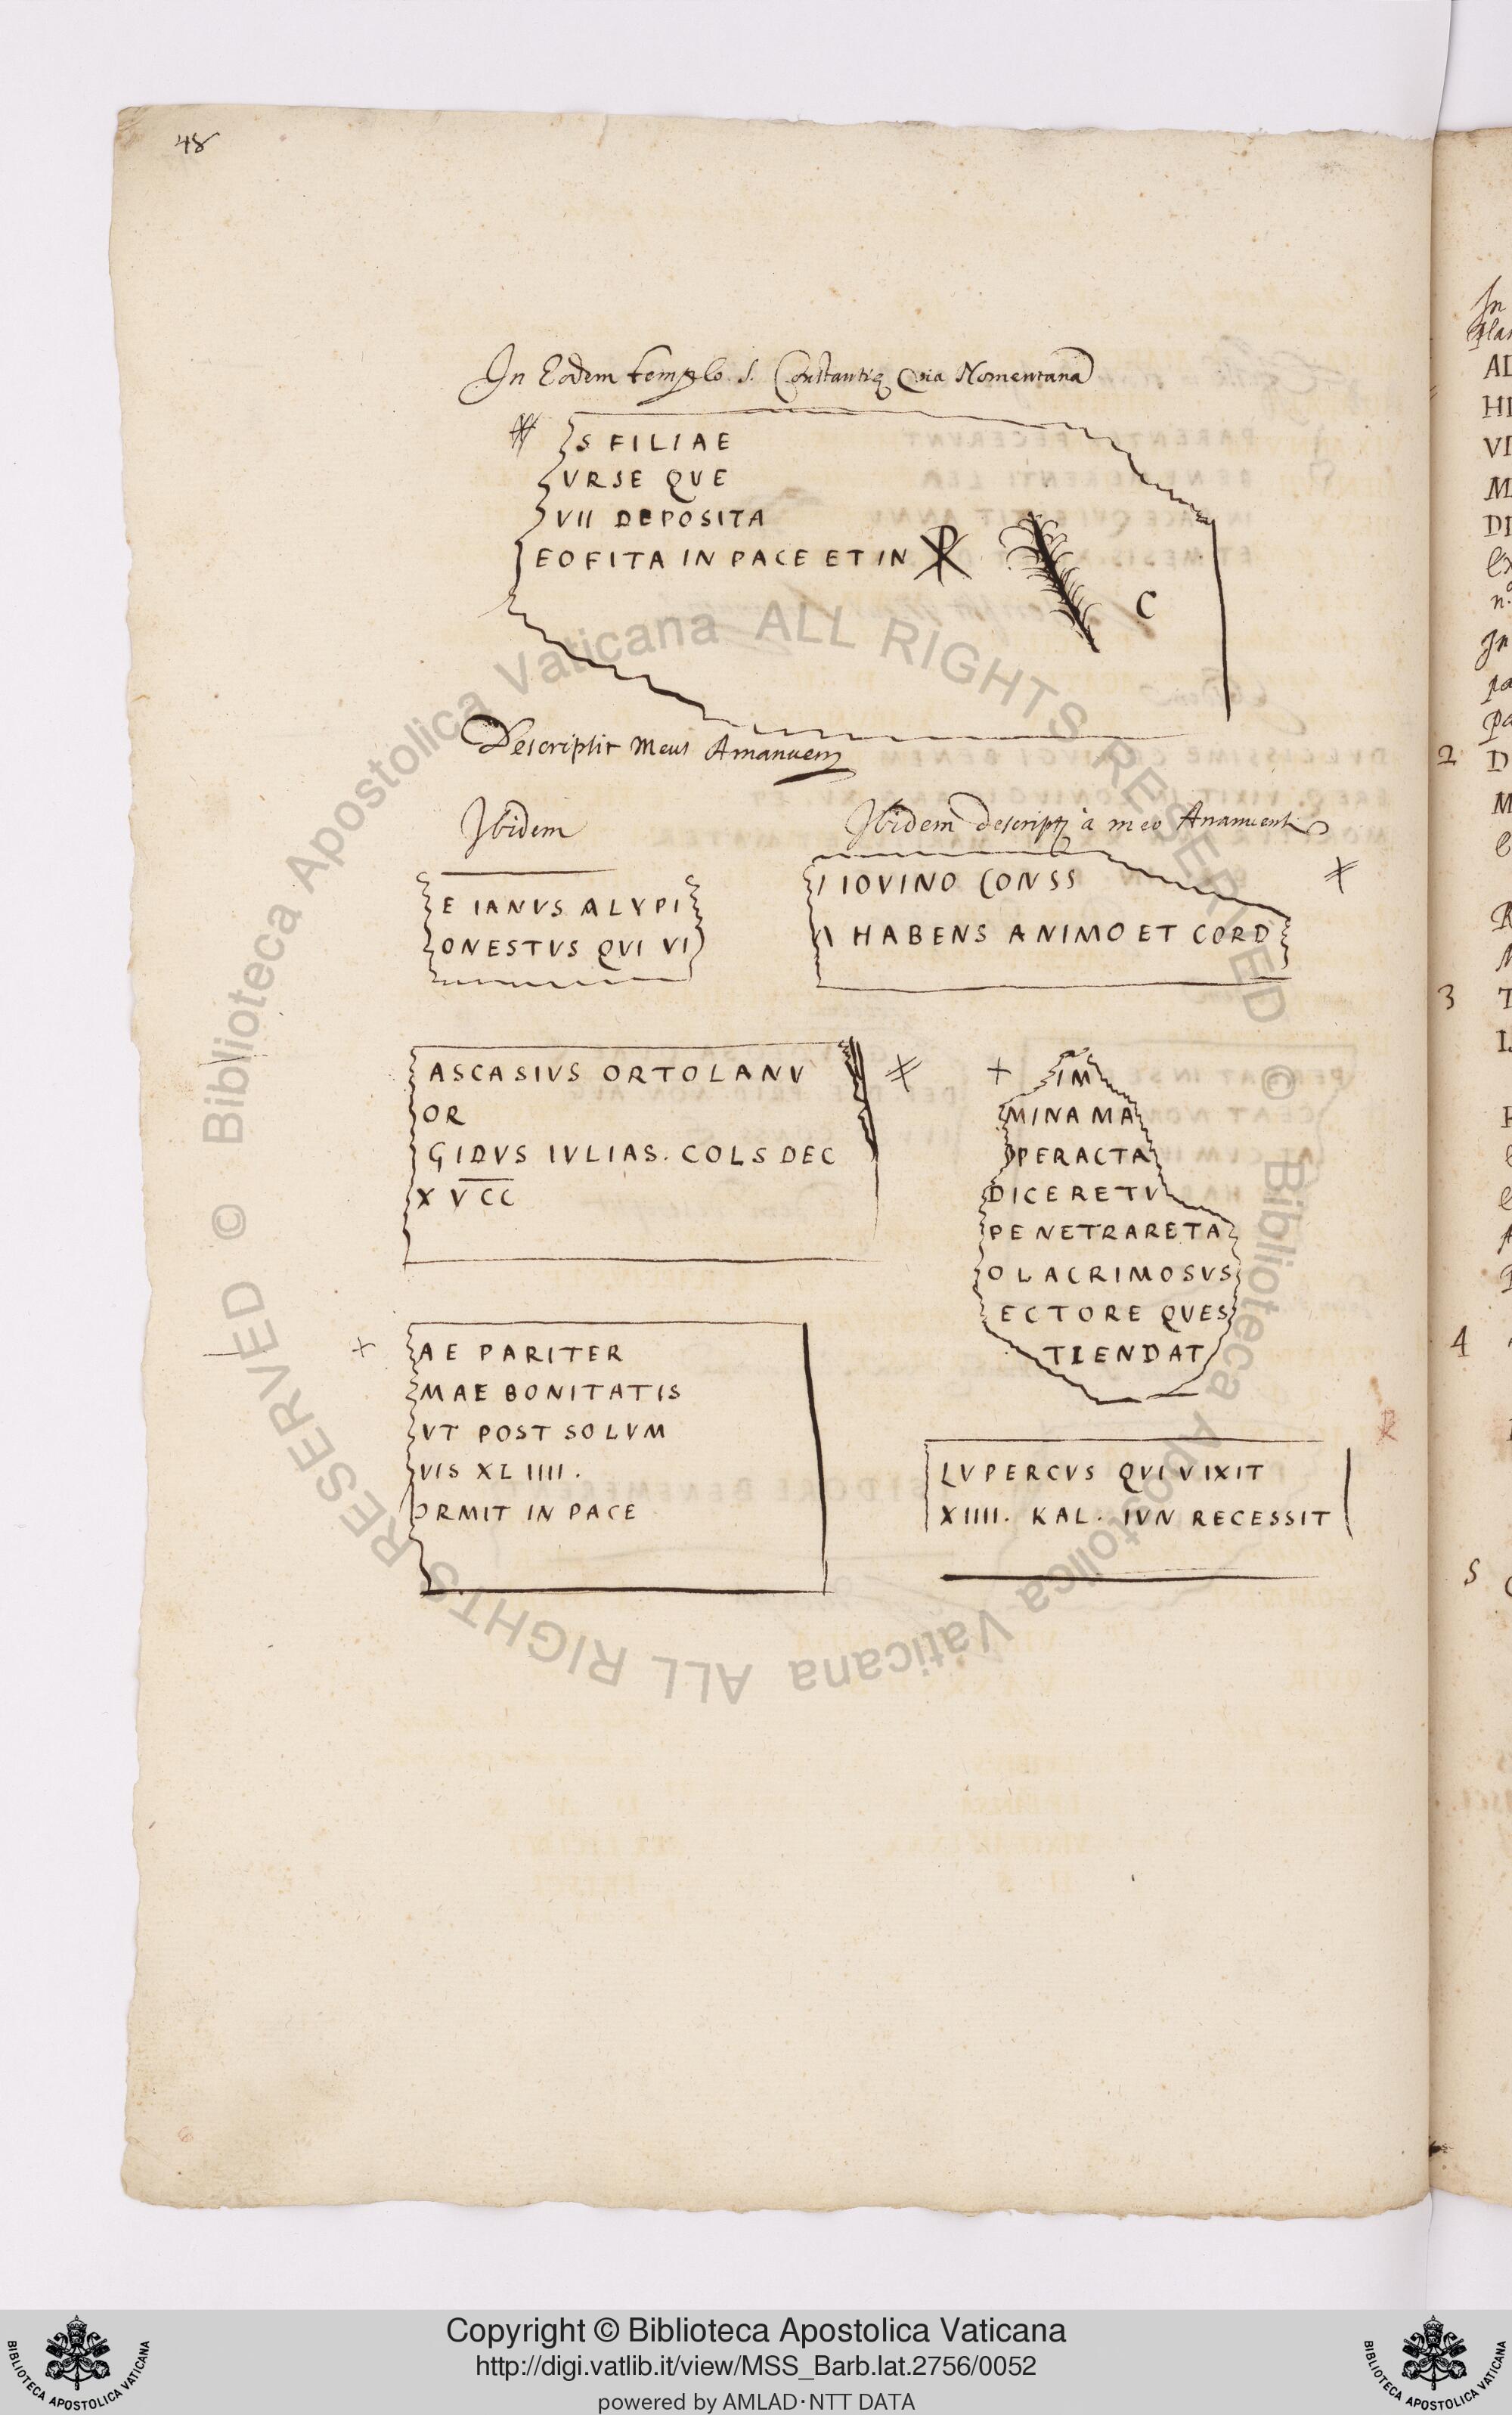 48
In Eodem templo S. Constantię via Nomentana
S FILIAE
VRSE QVE
VII DEPOSITA
EOFITA IN PACE ET IN ☧
C
Descripsit meus Amanuens
Ibidem
E IANVS ALVPI
ONESTVS QVI VI
Ibidem descript à meo Amanuens
I IOVINO CONSS
\ HABENS ANIMO ET CORD
ASCASIVS ORTOLANV
OR
GIDVS IVLIAS. COLS DEC
X V CC
IM
MINA MA
PERACTA
DICERETV
PENETRARETA
OLACRIMOSVS
ECTORE QVES
TIENDAT
AE PARITER
MAE BONITATIS
VT POST SOLVM
VIS XL IIII.
ORMIT IN PACE
LVPERCVS QVI VIXIT
XIIII. KAL. IVN RECESSIT
In
AD
HI
VI
M
DI
2
3
4
5
© Biblioteca Apostolica Vaticana ALL RIGHTS RESERVED
© Biblioteca Apostolica Vaticana ALL RIGHTS RESERVED
BIBLIOTECA APOSTOLICA VATICANA
Copyright © Biblioteca Apostolica Vaticana
http://digi.vatlib.it/view/MSS_Barb.lat.2756/0052
powered by AMLAD·NTT DATA
BIBLIOTECA APOSTOLICA VATICANA